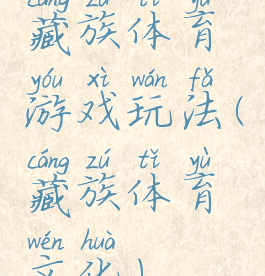 cáng zú tǐ yù
藏族体育
yóu xì wán fǎ
游戏玩法(
cáng zú tǐ yù
藏族体育
wén huà
文化)